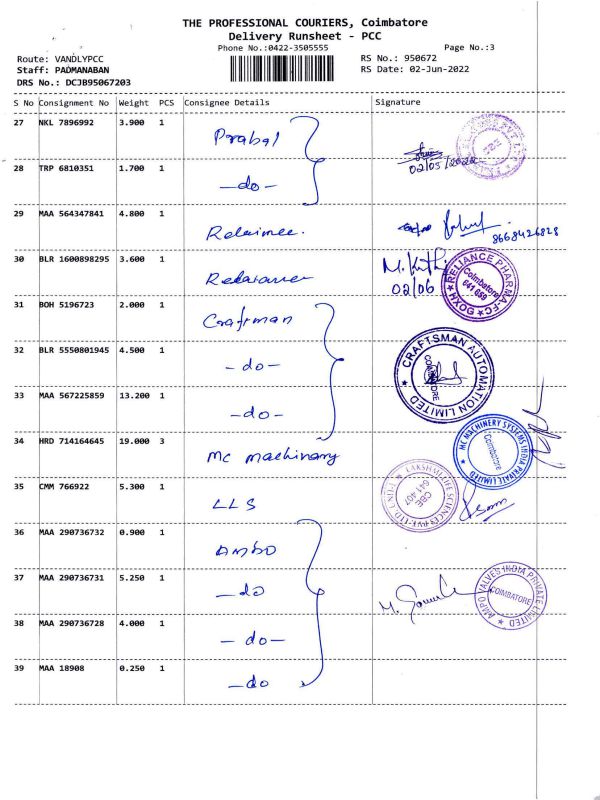 THE PROFESSIONAL COURIERS, Coimbatore
Delivery Runsheet - PCC
Phone No.:0422-3505555 Page No.:3
Route: VANDLYPCC RS No.: 950672
Staff: PADMANABAN RS Date: 02-Jun-2022
DRS No.: DCJB95067203
S No Consignment No Weight PCS Consignee Details Signature
27 NKL 7896992 3.900 1 Prabal
02/05/2022
28 TRP 6810351 1.700 1 -do-
29 MAA 564347841 4.800 1
8668426828
30 BLR 1600898295 3.600 1 M.Kuthi
02/06
RELIANCE PHARMA-FC
Coimbatore
641 659
31 BOH 5196723 2.000 1 Craftman
32 BLR 5550801945 4.500 1 -do-
CRAFTSMAN AUTOMATION LIMITED
COIMBATORE
33 MAA 567225859 13.200 1 -do-
34 HRD 714164645 19.000 3 MC machinary
MC MACHINERY SYSTEMS INDIA PRIVATE LIMITED
Coimbatore
35 CMM 766922 5.300 1 LLS
LAKSHMI LIFE SCIENCES PVT. LTD.
CBE
641 407
36 MAA 290736732 0.900 1 AMBO
37 MAA 290736731 5.250 1 -do
AMPO VALVES INDIA PRIVATE LIMITED
COIMBATORE
38 MAA 290736728 4.000 1 -do-
39 MAA 18908 0.250 1 -do